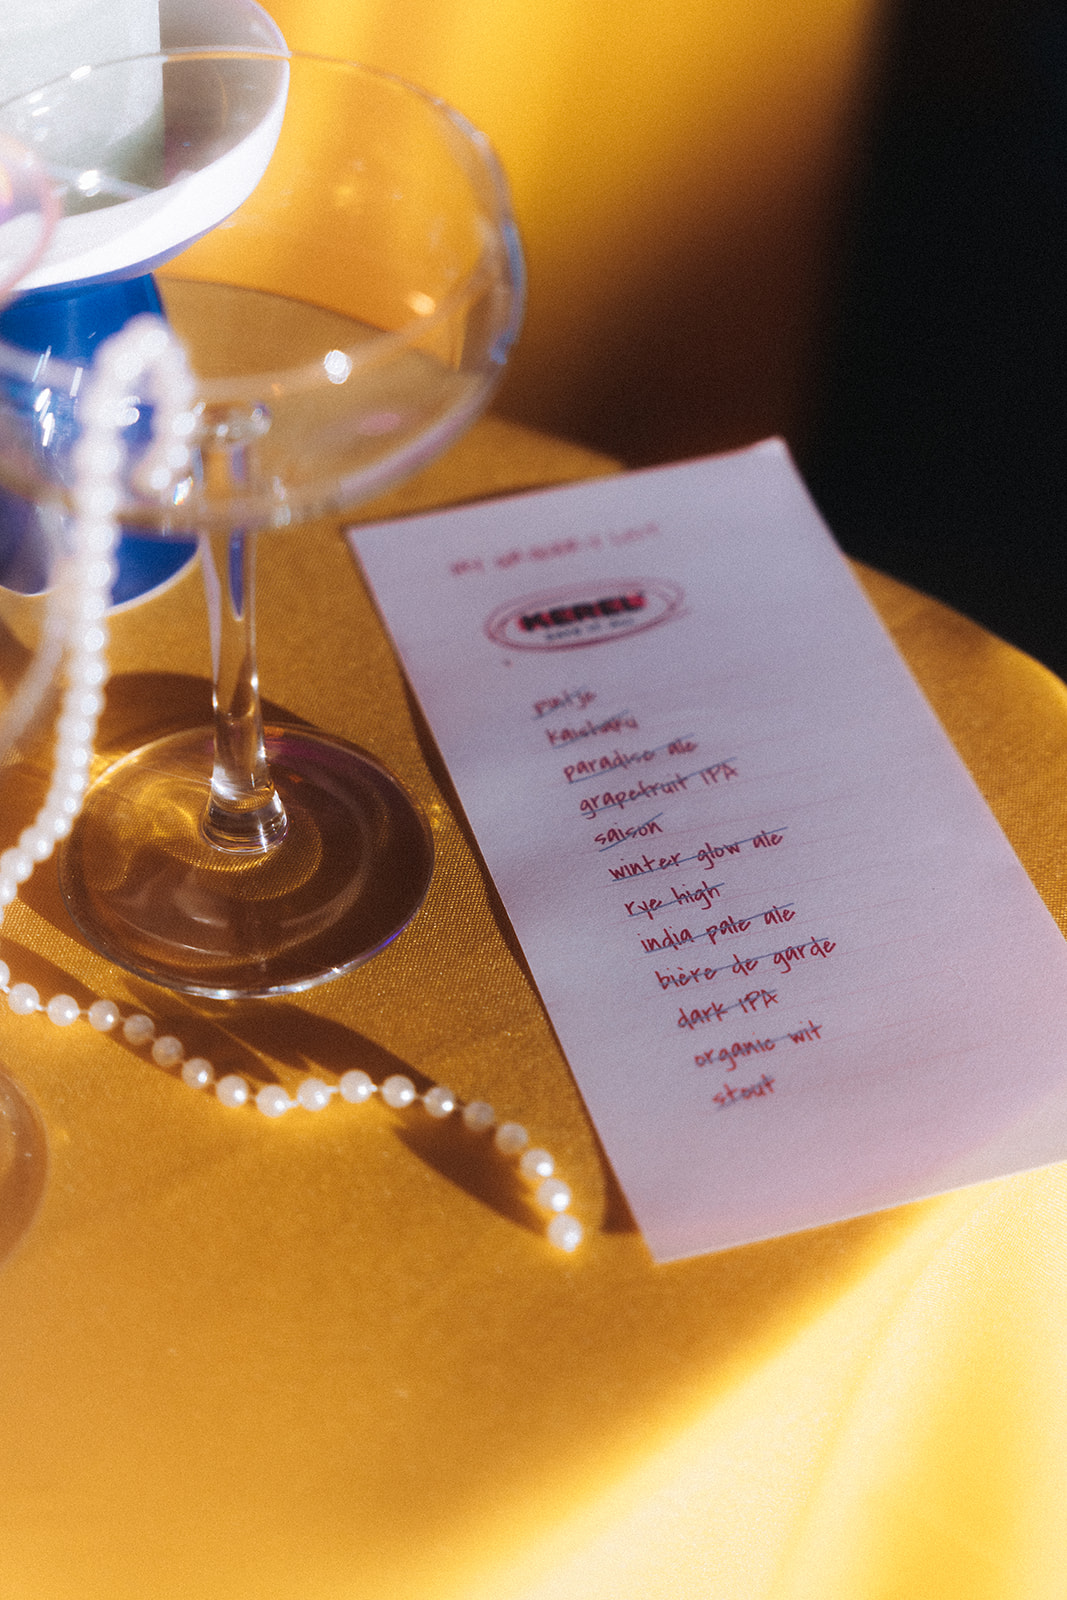 MY GROCERY LIST
KEREL
pintje
kaishaku
paradise ale
grapefruit IPA
saison
winter glow ale
rye high
india pale ale
bière de garde
dark IPA
organic wit
stout